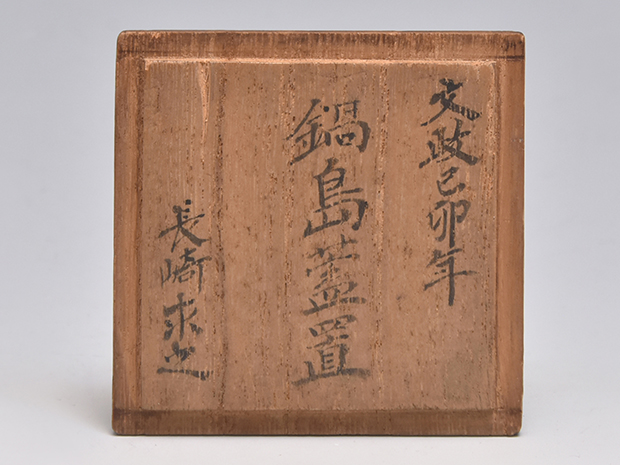 文政己卯年
鍋島蓋置
長崎求之